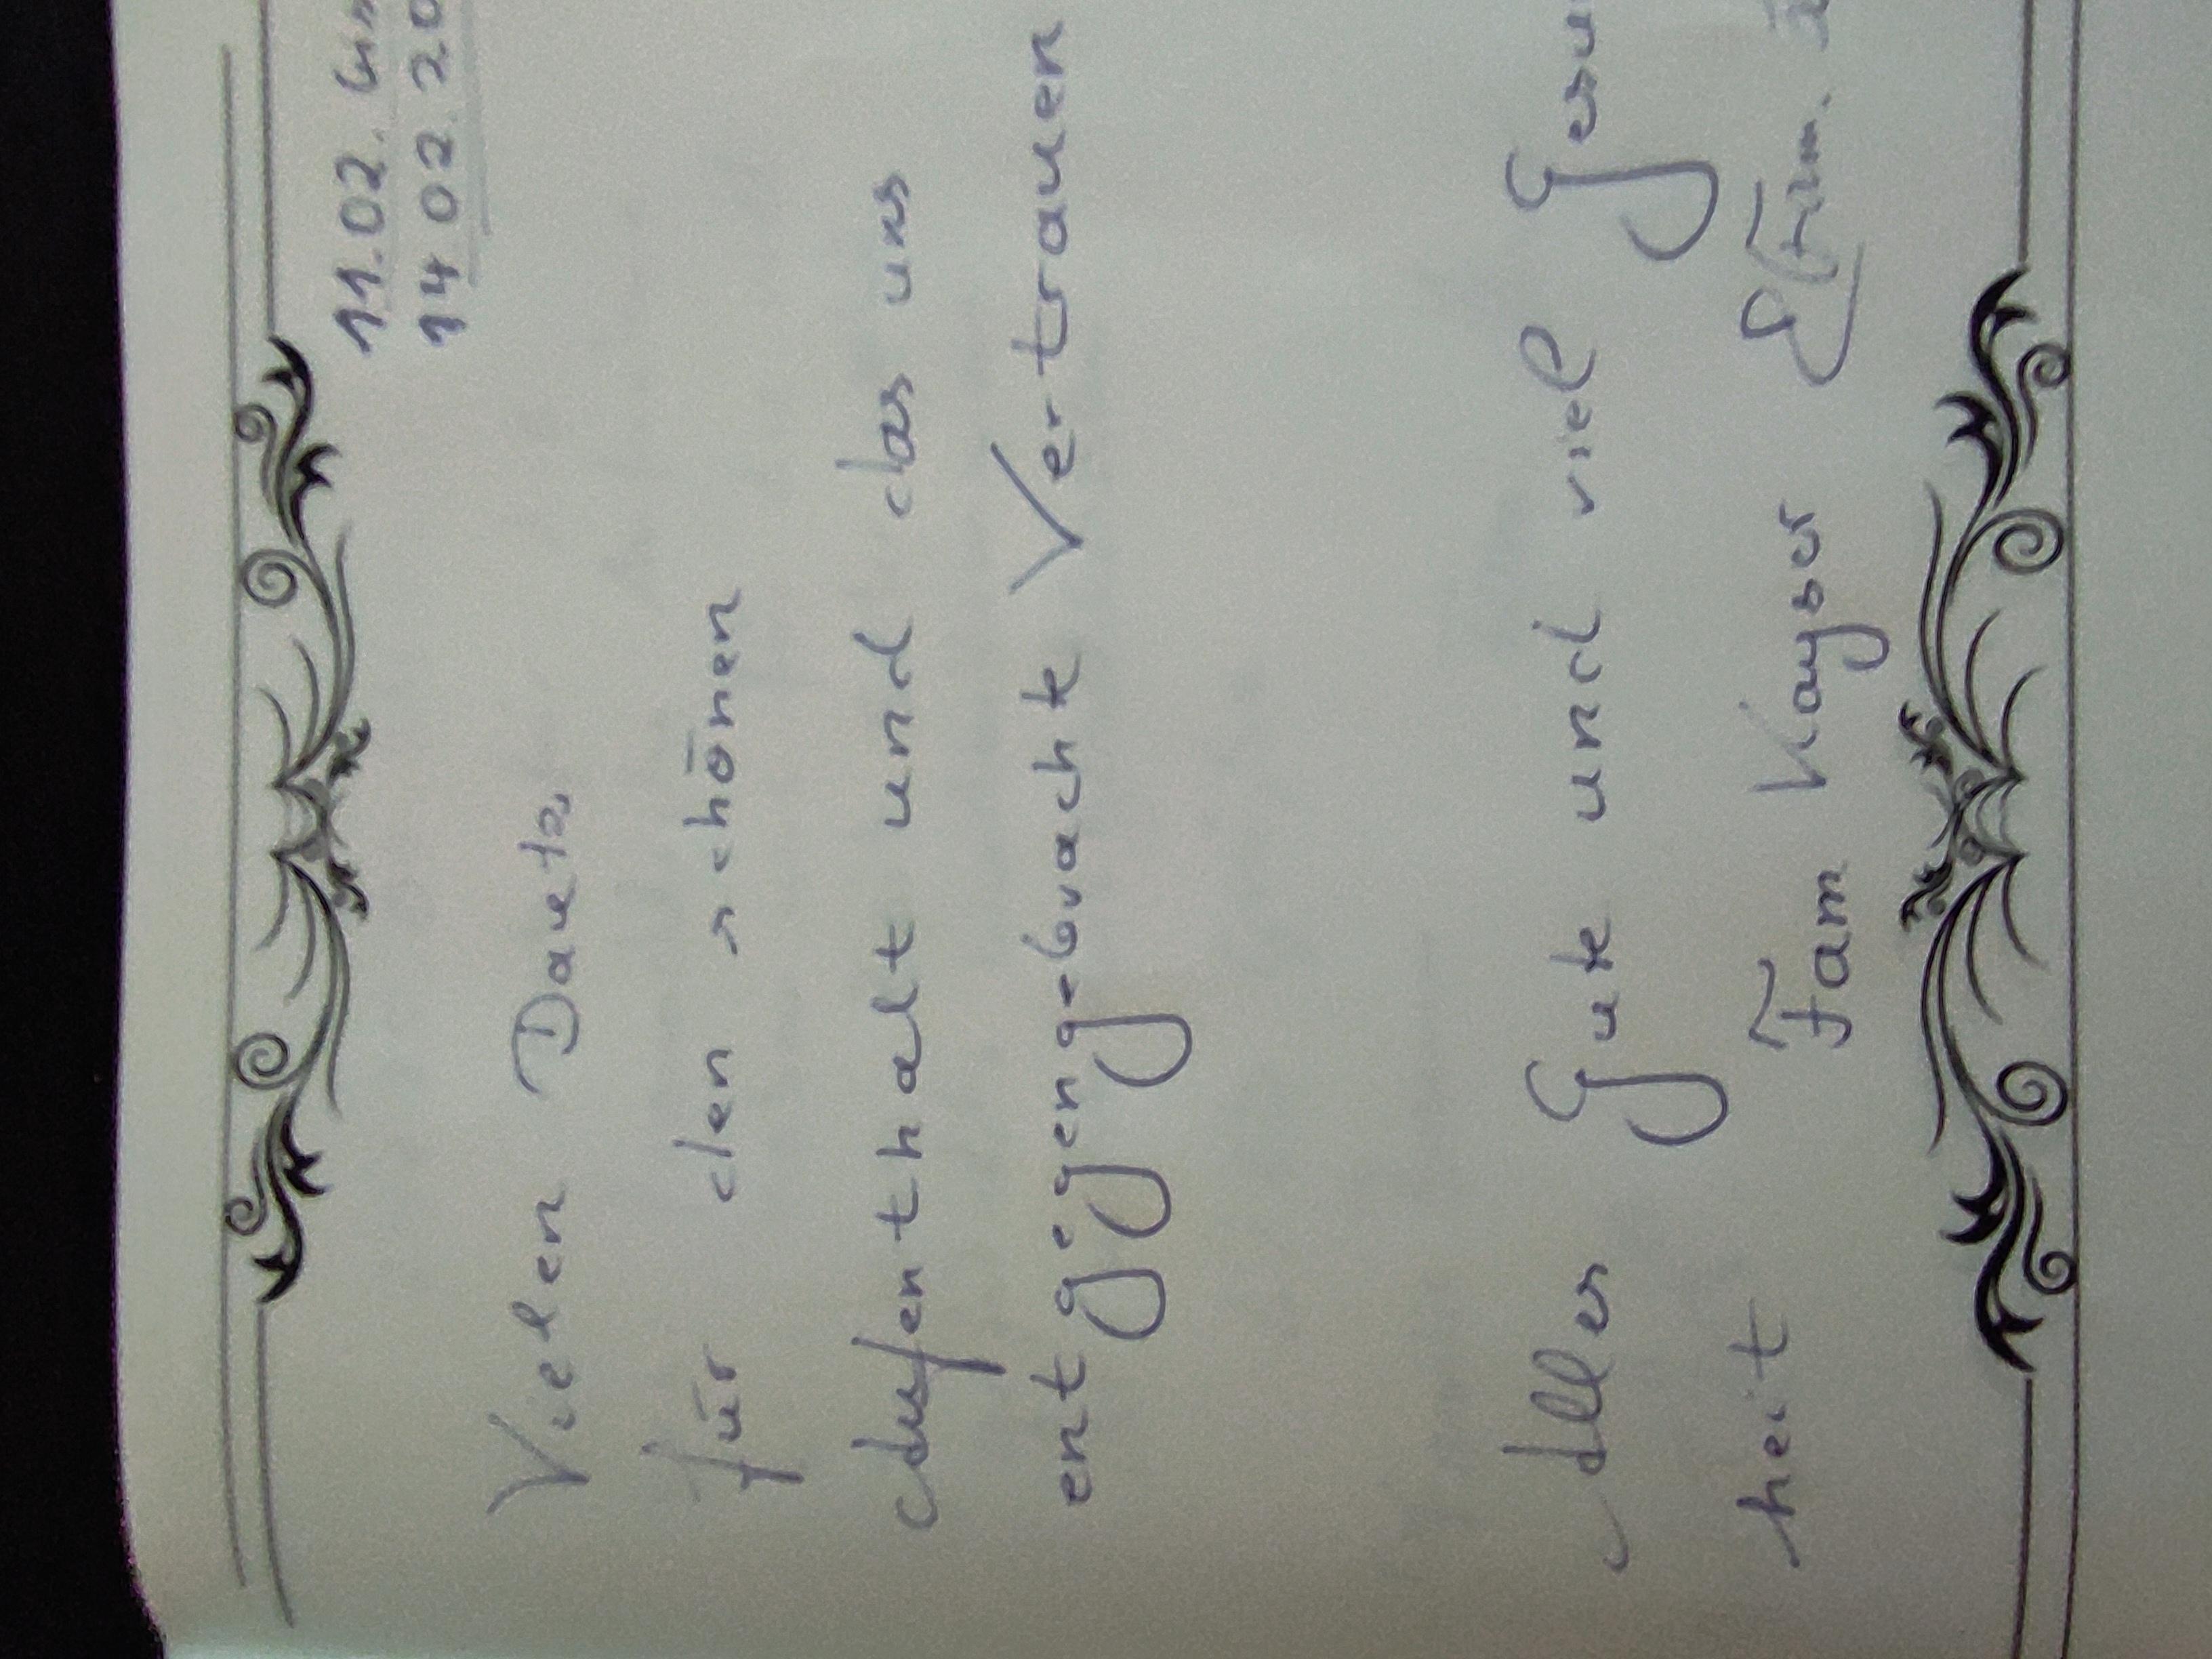 11.02.
14.02.20
Vielen Dank
für den schönen
Aufenthalt und das uns
entgegengebracht Vertrauen
Alles Gute und viel Gesu
heit Fam Kayser